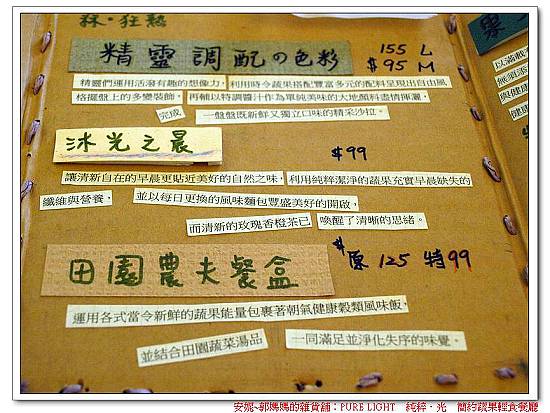 森・狂熱
精靈調配の色彩 155 L
$95 M
精靈們運用活潑有趣的想像力，利用時令蔬果搭配豐富多元的配料呈現出自由風
格擺盤上的多變裝飾，再輔以特調醬汁作為單純美味的大地顏料盡情揮灑，
完成 一盤盤既新鮮又獨立口味的精采沙拉。
沐光之晨 $99
讓清新自在的早晨更貼近美好的自然之味，利用純粹潔淨的蔬果充實早晨缺失的
纖維與營養， 並以每日更換的風味麵包豐盛美好的開啟，
而清新的玫瑰香橙茶已 喚醒了清晰的思緒。
田園農夫餐盒 $原125 特99
運用各式當令新鮮的蔬果能量包裹著朝氣健康穀類風味飯，
並結合田園蔬菜湯品 一同滿足並淨化失序的味覺。
以滿載
無須添
與健康
健康
安妮~郭媽媽的雜貨舖：PURE LIGHT 純粹‧光 簡約蔬果輕食餐廳